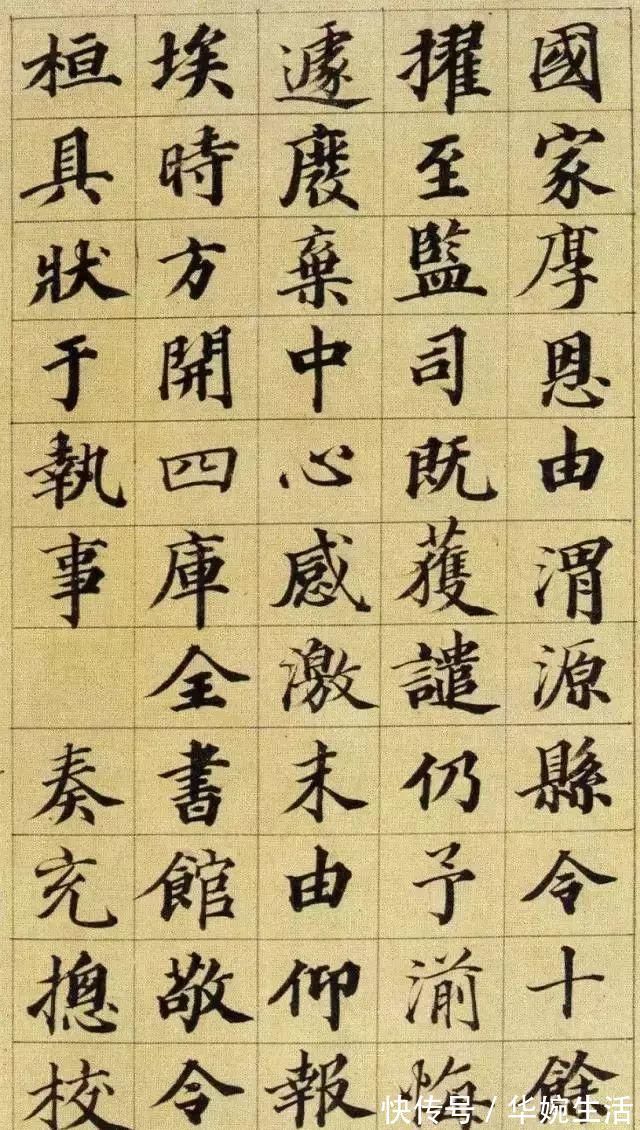 國家厚恩由渭源縣令十餘
擢至監司既獲譴仍予湔悔
遽廢棄中心感激末由仰報
埃時方開四庫全書館敬令
桓具狀于執事 奏充摠校
快传号／华婉生活